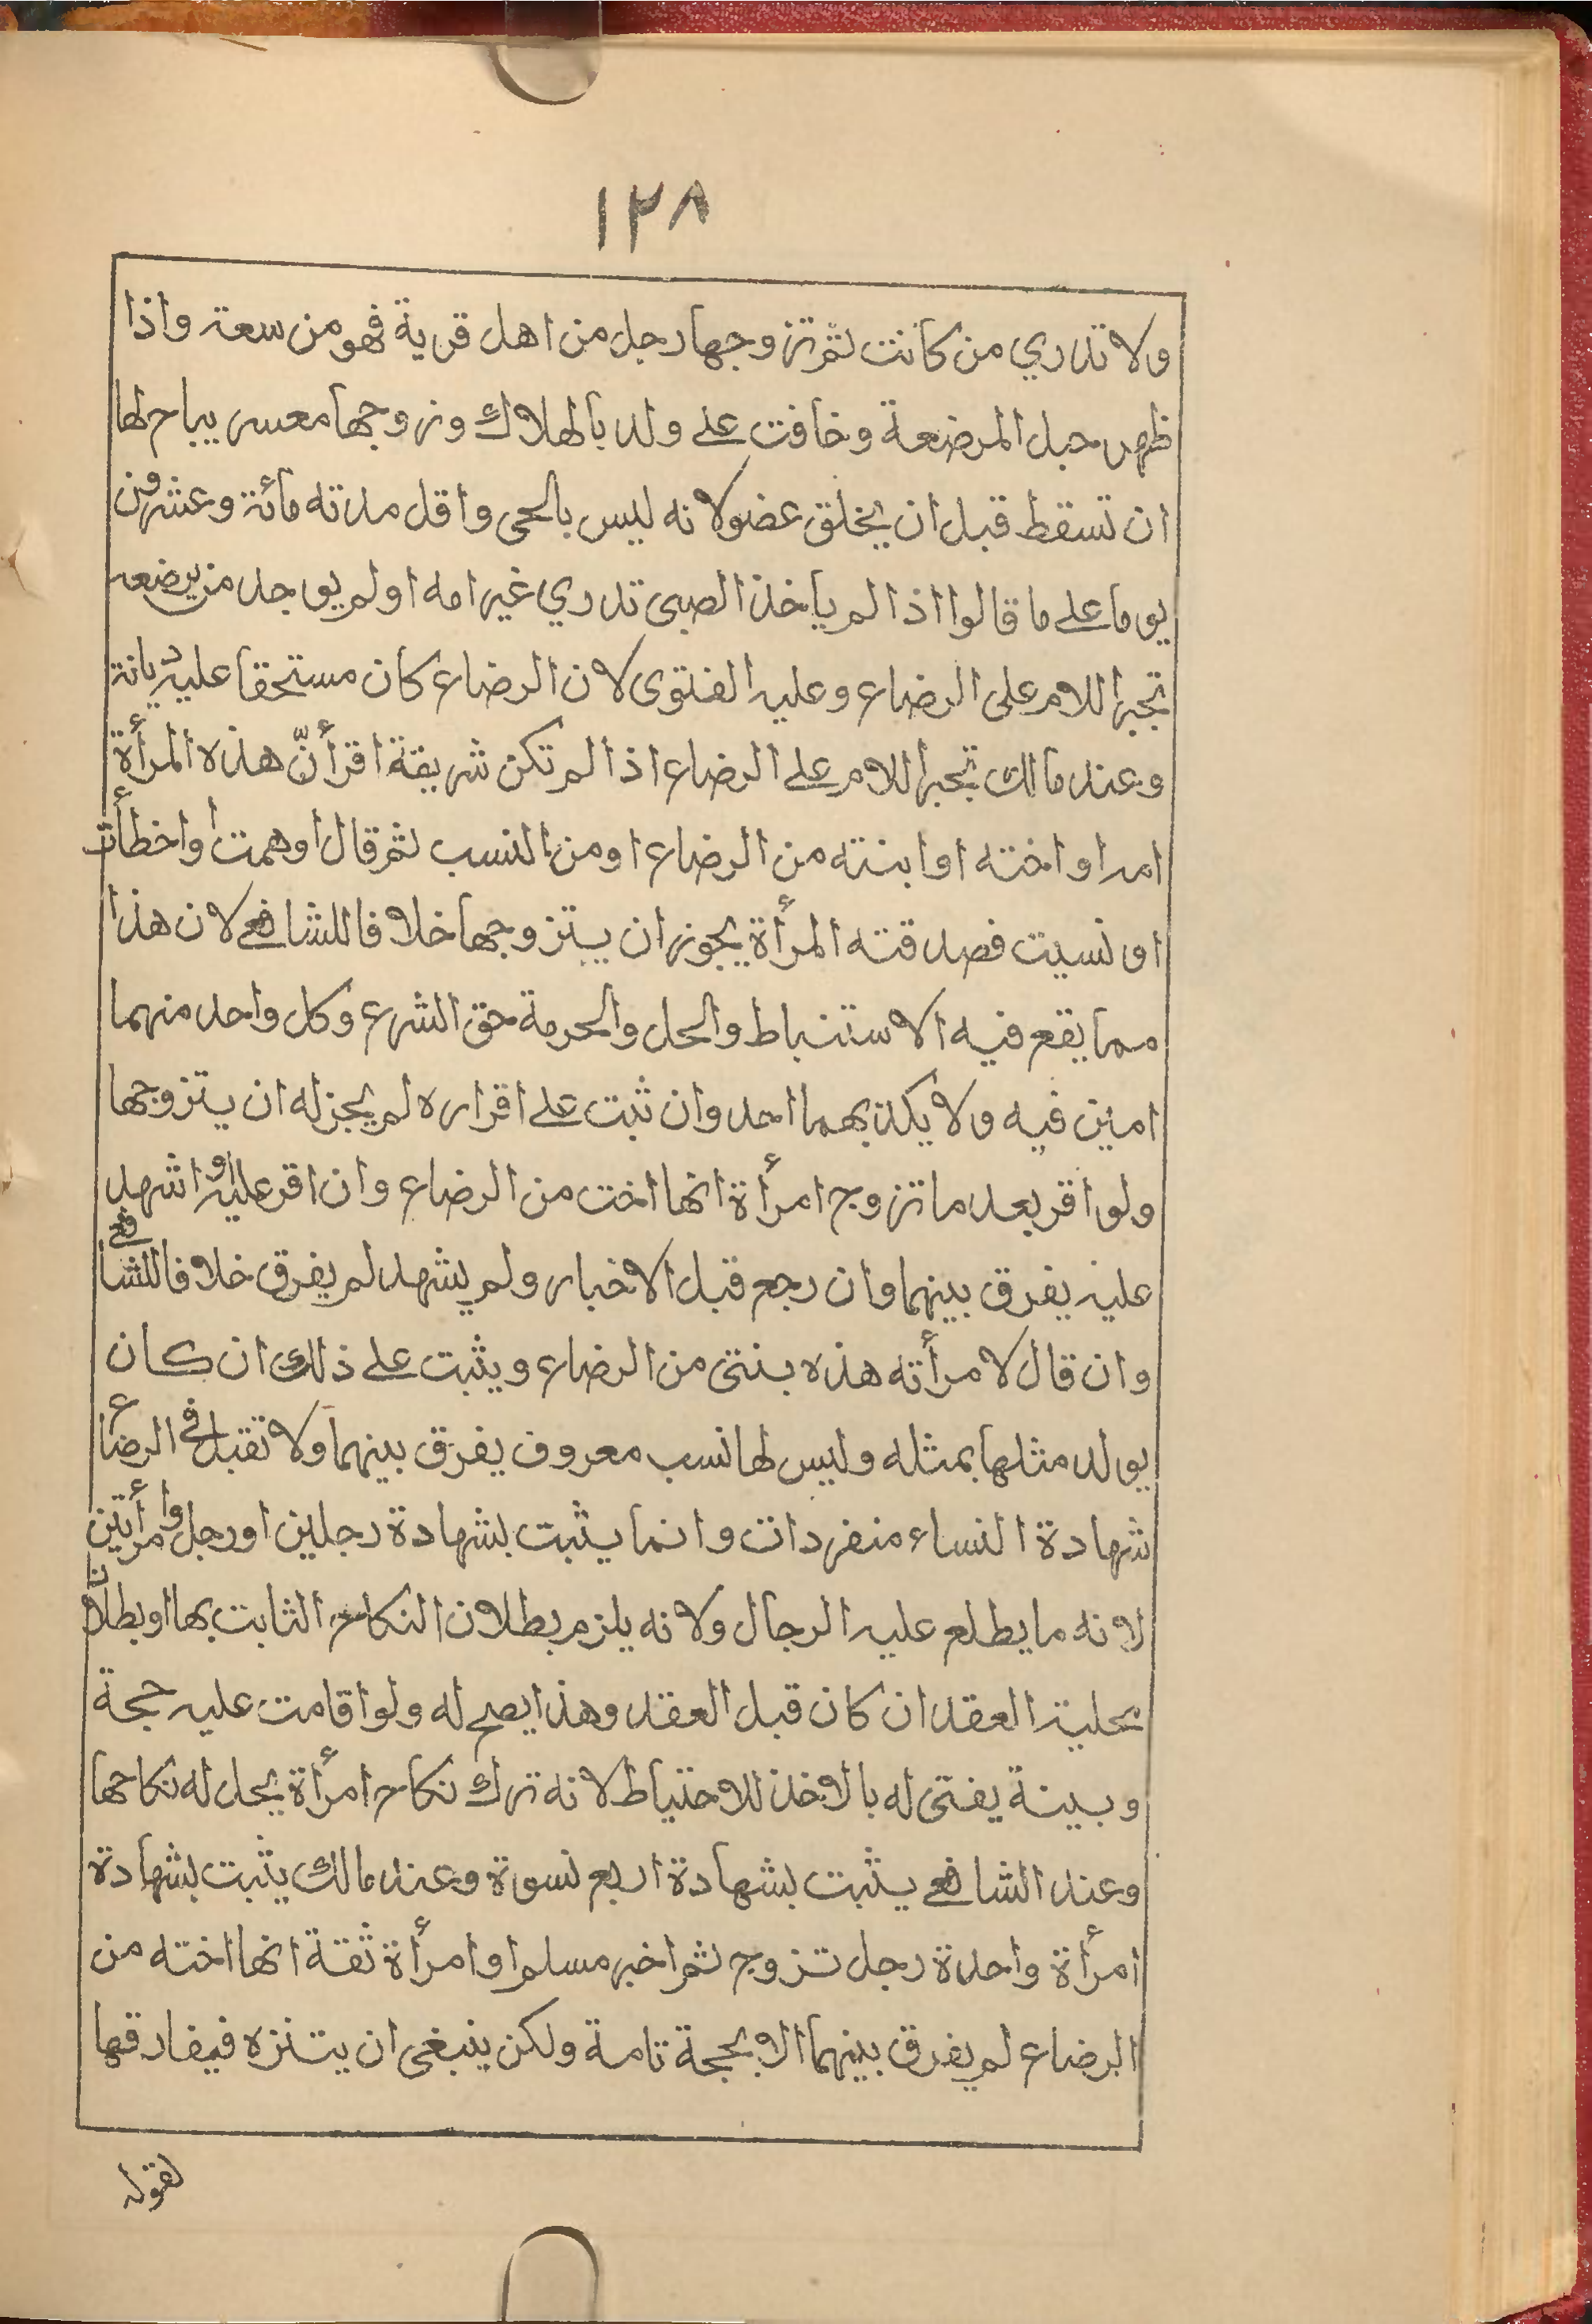 ١٢٨
ولا تدري من كانت ثم تزوجها رجل من اهل قرية فهو من سعة واذا
ظهر حبل المرضعة وخافت على ولد بالهلاك وزوجها معسر يباح لها
ان تسقط قبل ان يخلق عضو لانه ليس بالحى واقل مدته مائة وعشرون
يوما على ما قالوا اذا لم ياخذ الصبى تدري غير امه او لم يوجد من يرضعه
تجبر اللام على الرضاع وعليه الفتوى لان الرضاع كان مستحقا عليه ديانة
وعند مالك تجبر اللام على الرضاع اذا لم تكن شريفة اقر أنّ هذه المرأة
امه او اخته او ابنته من الرضاع او من النسب ثم قال اوهمت او اخطأت
او نسيت فصدقته المرأة يجوز ان يتزوجها خلافا للشافعي لان هذا
مما يقع فيه الاستنباط والحل والحرمة حق الشرع وكل واحد منهما
امين فيه ولا يكذبهما احد وان ثبت على اقراره لم يجز له ان يتزوجها
ولو اقر بعد ما تزوج امرأة انها اخت من الرضاع وان اقر عليه او اشهد
عليه يفرق بينهما وان رجع قبل الاخبار ولم يشهد لم يفرق خلافا للشافعي
وان قال لامرأته هذه بنتى من الرضاع ويثبت على ذلك ان كان
يولد مثلها بمثله وليس لها نسب معروف يفرق بينهما ولا تقبل في الرضاع
شهادة النساء منفردات وانما يثبت بشهادة رجلين او رجل وامرأتين
لانه ما يطلع عليه الرجال ولانه يلزم بطلان النكاح الثابت بها او بطلان
محلية العقد ان كان قبل العقد وهذا يصح له ولو اقامت عليه حجة
وبينة يفتى له بالاخذ للاحتياط لانه ترك نكاح امرأة يحل له نكاحها
وعند الشافعي يثبت بشهادة اربع نسوة وعند مالك يثبت بشهادة
امرأة واحدة رجل تزوج ثم اخبر مسلم او امرأة ثقة انها اخته من
الرضاع لم يفرق بينهما الا بحجة تامة ولكن ينبغى ان يتنزه فيفارقها
لقوله